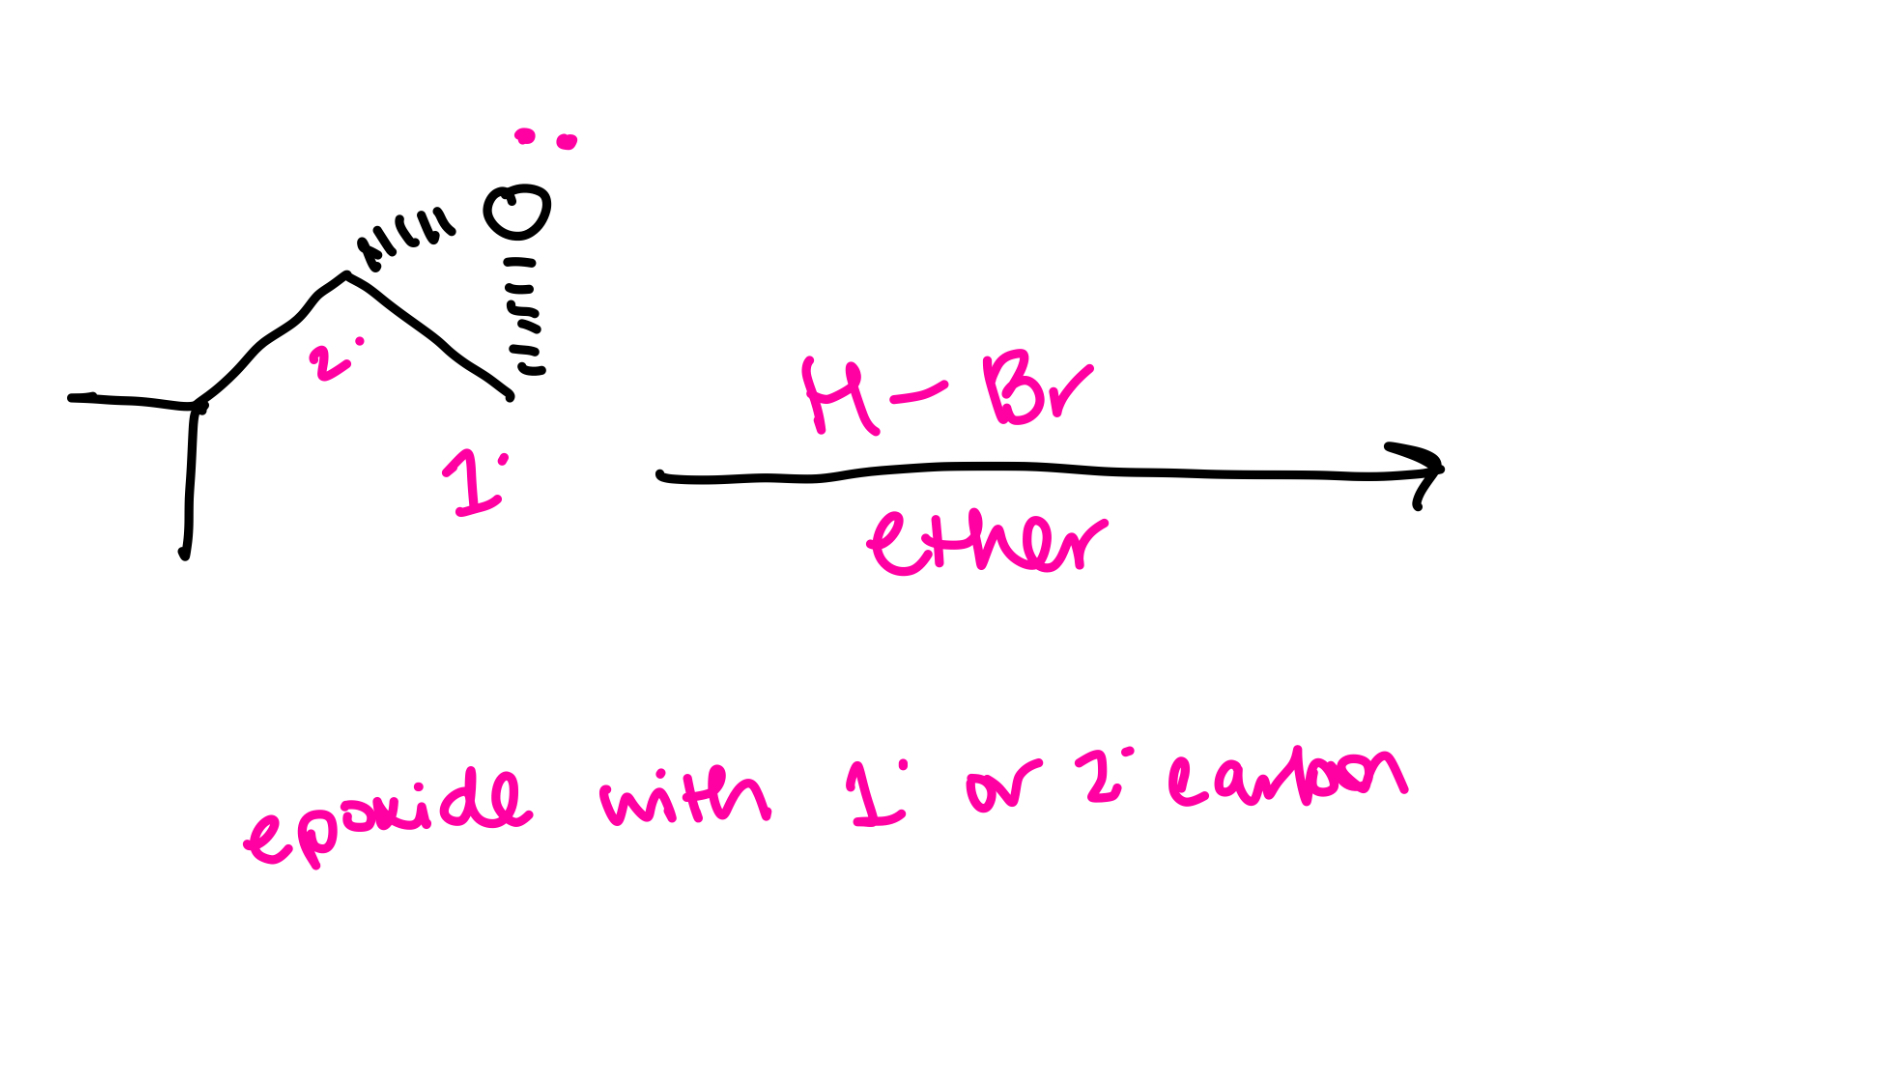 O
2°
1°
H-Br
ether
epoxide with 1° or 2° carbon